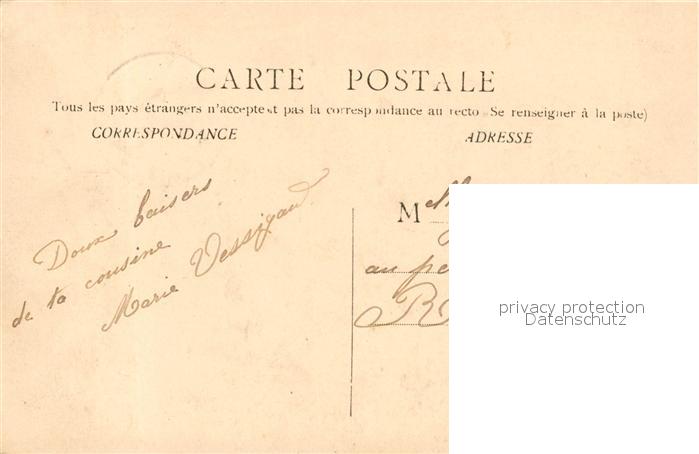 CARTE POSTALE
Tous les pays étrangers n'acceptent pas la correspondance au recto (Se renseigner à la poste)
CORRESPONDANCE
ADRESSE
Doux baisers
de ta cousine
Marie
M elle
au
privacy protection
Datenschutz